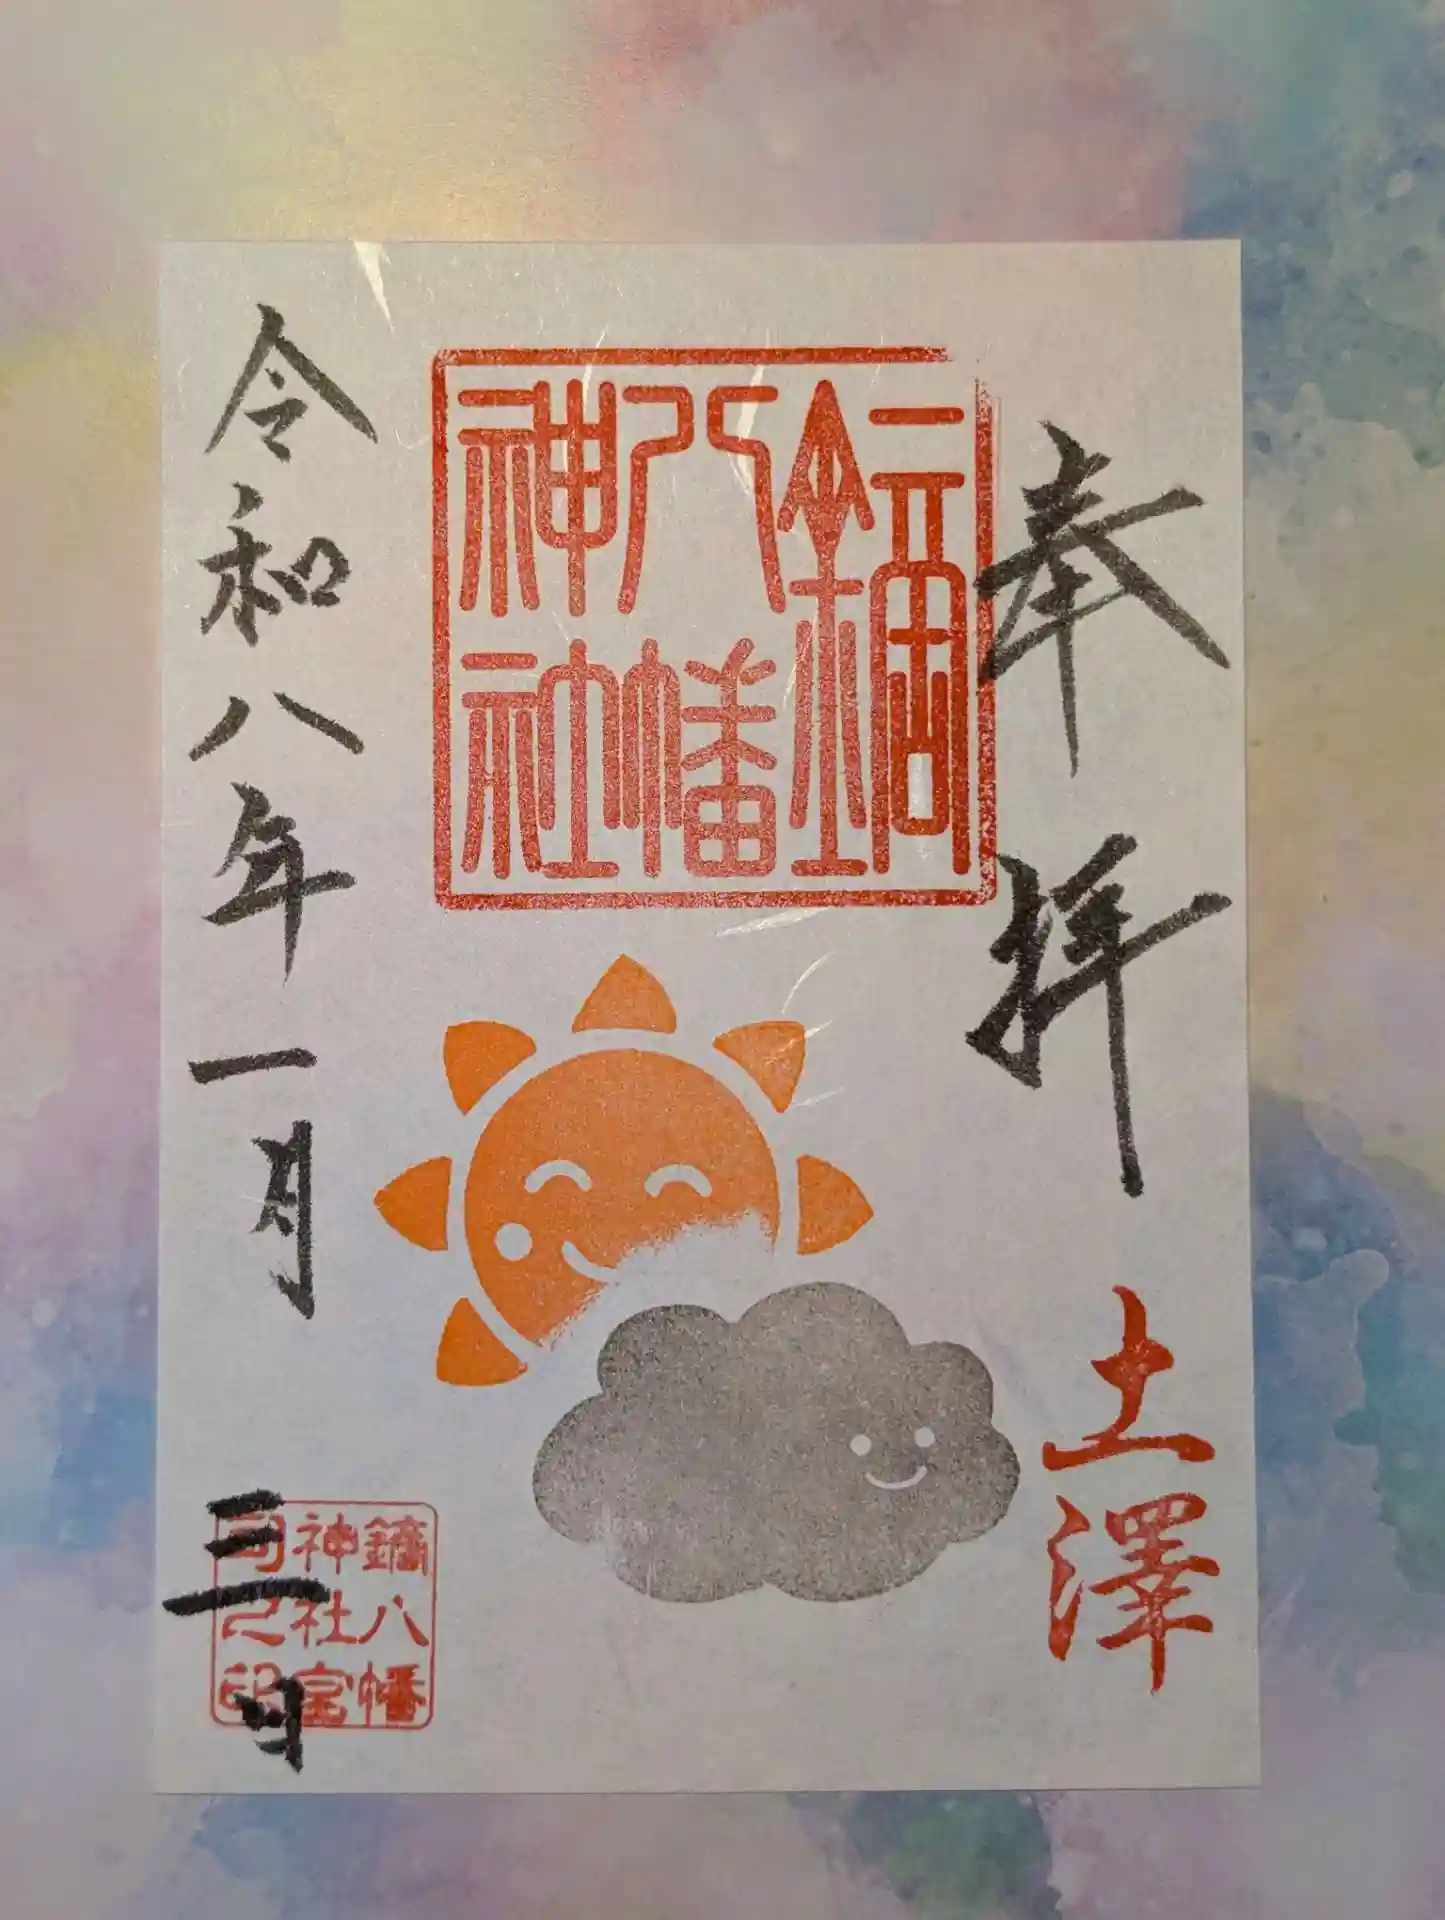 奉拝
土澤
鏑八幡神社
令和八年一月三日
鏑八幡
神社宮
司之印